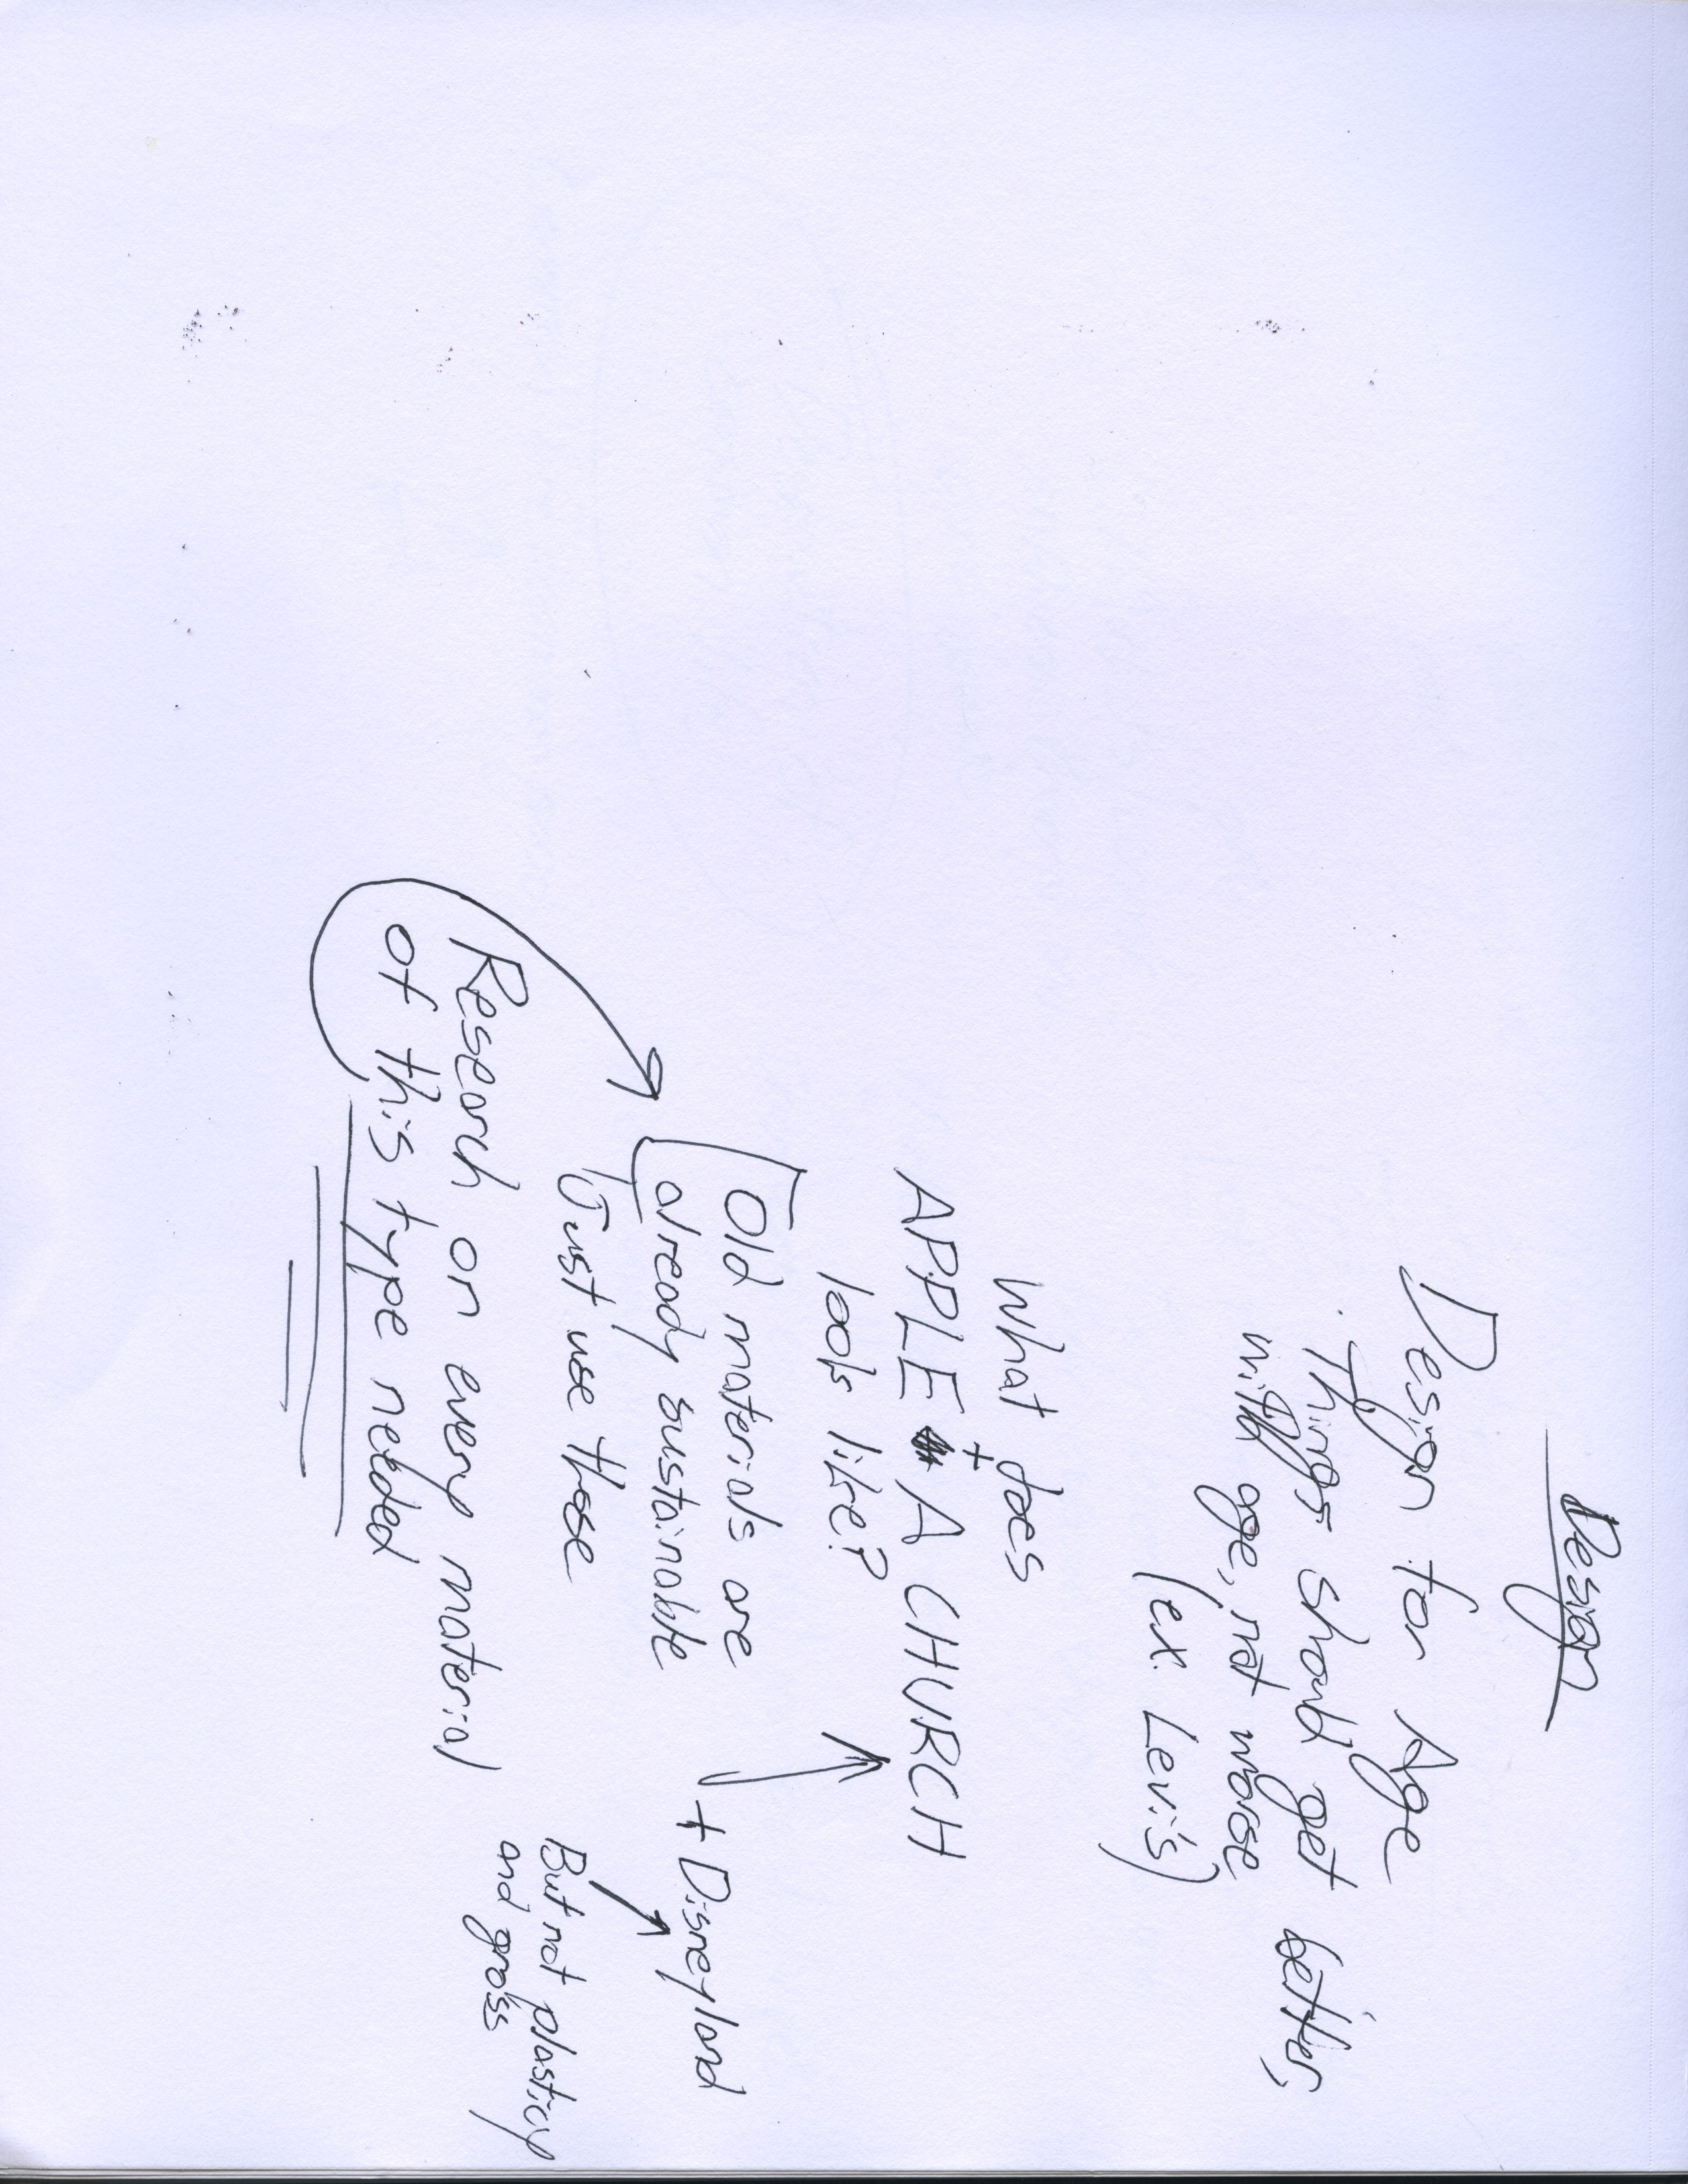 Design
Design for Age
. Things should get better,
with age, not worse
(ex. Levi's)
What does
APPLE + A CHURCH
look like?
Old materials are
already sustainable
Just use these
+ Disneyland
But not plasticy
and gross
Research on every material
of this type needed